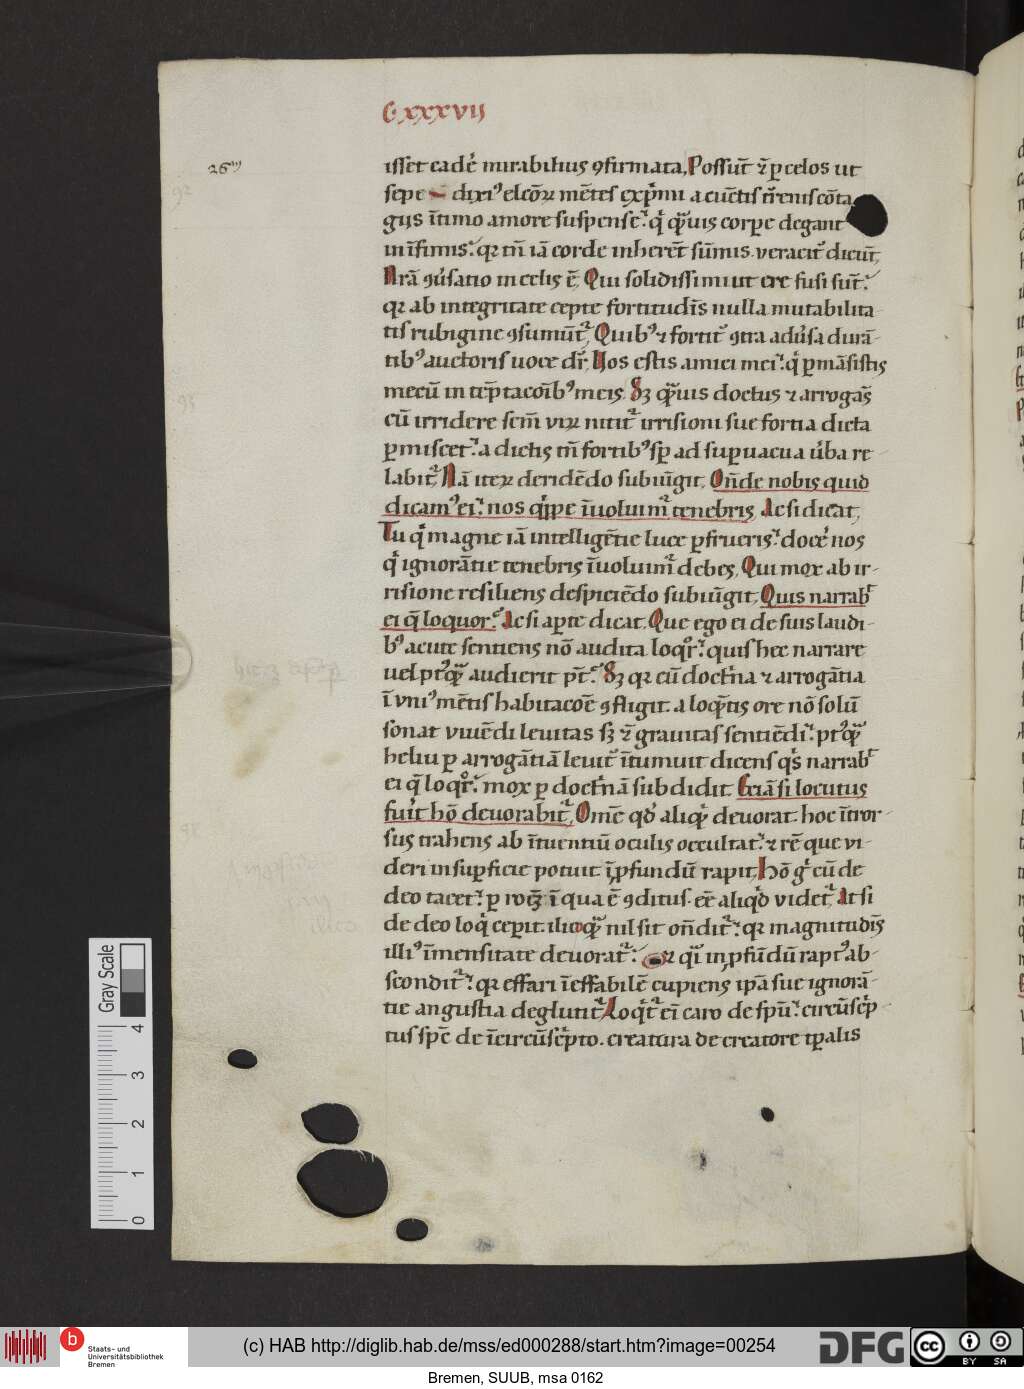 C xxxvii
26
isset eadē mirabilius ꝯfirmata. Possūt ⁊̄ ꝑ celos ut
sepe dixi᷒ electoꝝ mētes exp̄mi a cūctis t̄renis cōta
giis ītimo amore suspense. q̄ quāuis corꝑe degant
in īfimis. qꝛ tn̄ iā corde inherēt sūmis. veracit̄ dicūt,
Nrā ꝯūsatio in celis ē. Qui solidissimi ut ere fusi sūt.
qꝛ ab integritate cepte fortitudīs nulla mutabilita
tis rubigine ꝯsumūt̄. Quib᷒ ⁊ fortit̄ ꝯtra adūsa durā
tib᷒ auctoris uoce dr̄. Uos estis amici mei. q̄ ꝑmāsistis
mecū in tēptacoīb᷒ meis. Sꝫ quāuis doctus ⁊ arrogās
cū irridere sem̄ viꝝ nitit̄ irrisioni sue fortia dicta
ꝑmiscet. a dictis tn̄ fortib᷒ sꝑ ad suꝑuacua ūba re
labit̄. Nā iteꝝ deridēdo subiūgit. Oñde nobis quid
dicam᷒ ei. nos q̄ppe īuoluim̄ tenebris. Ac si dicat,
Tu q̄ magne iā intelligētie luce ꝑfrueris. docē nos
q̄ ignorātie tenebris īuoluim̄ debes. Qui mox ab ir-
risione resiliens despiciēdo subiūgit. Quis narrab̄
ei q̄ loquor. Ac si aꝑte dicat. Que ego ei de suis laudi-
b᷒ acute sentiens nō audita loqr̄. quis hec narrare
uel ptq̄ audierit pt̄. Sꝫ qꝛ cū doctn̄a ⁊ arrogātia
ī vni᷒ mētis habitacoē ꝯfligit. a loq̄ntis ore nō solū
sonat viuēdi leuitas sꝫ ⁊̄ grauitas sentiēdi. ptq̄
heliu ꝑ arrogātiā leuit̄ ītumuit dicens qs̄ narrab̄
ei q̄ loqr̄. mox ꝑ doctn̄ā subdidit. Etiā si locutus
fuīt hō deuorabit̄. Om̄e qd̄ aliqd̄ deuorat. hoc ītror-
sus trahens ab ītuentiū oculis occultat. ⁊ rē que vi-
deri in suꝑficie potuit ī ꝓfundū rapit. Hō g̊ cū de
deo tacet. ꝑ roꝫ ī qua ē ꝯditus. eē aliqd̄ videt̄. At si
de deo loq̄ ceperit. ilico q̄ nil sit oñdit̄. qꝛ magnitudīs
illi᷒ īmensitate deuorat̄. ⁊ q̄i in ꝓfūdū rapt᷒ ab-
scondit̄. qꝛ effari īeffabilē cupiens ipā sue ignorā-
tie angustia deglutit̄. Loqt̄ eī caro de spū. circūscp̄-
tus spē de īcircūscp̄to. creatura de creatore tꝑalis
Gray Scale
4
3
2
1
0
b
Staats- und
Universitätsbibliothek
Bremen
(c) HAB http://diglib.hab.de/mss/ed000288/start.htm?image=00254
DFG
cc
BY SA
Bremen, SUUB, msa 0162